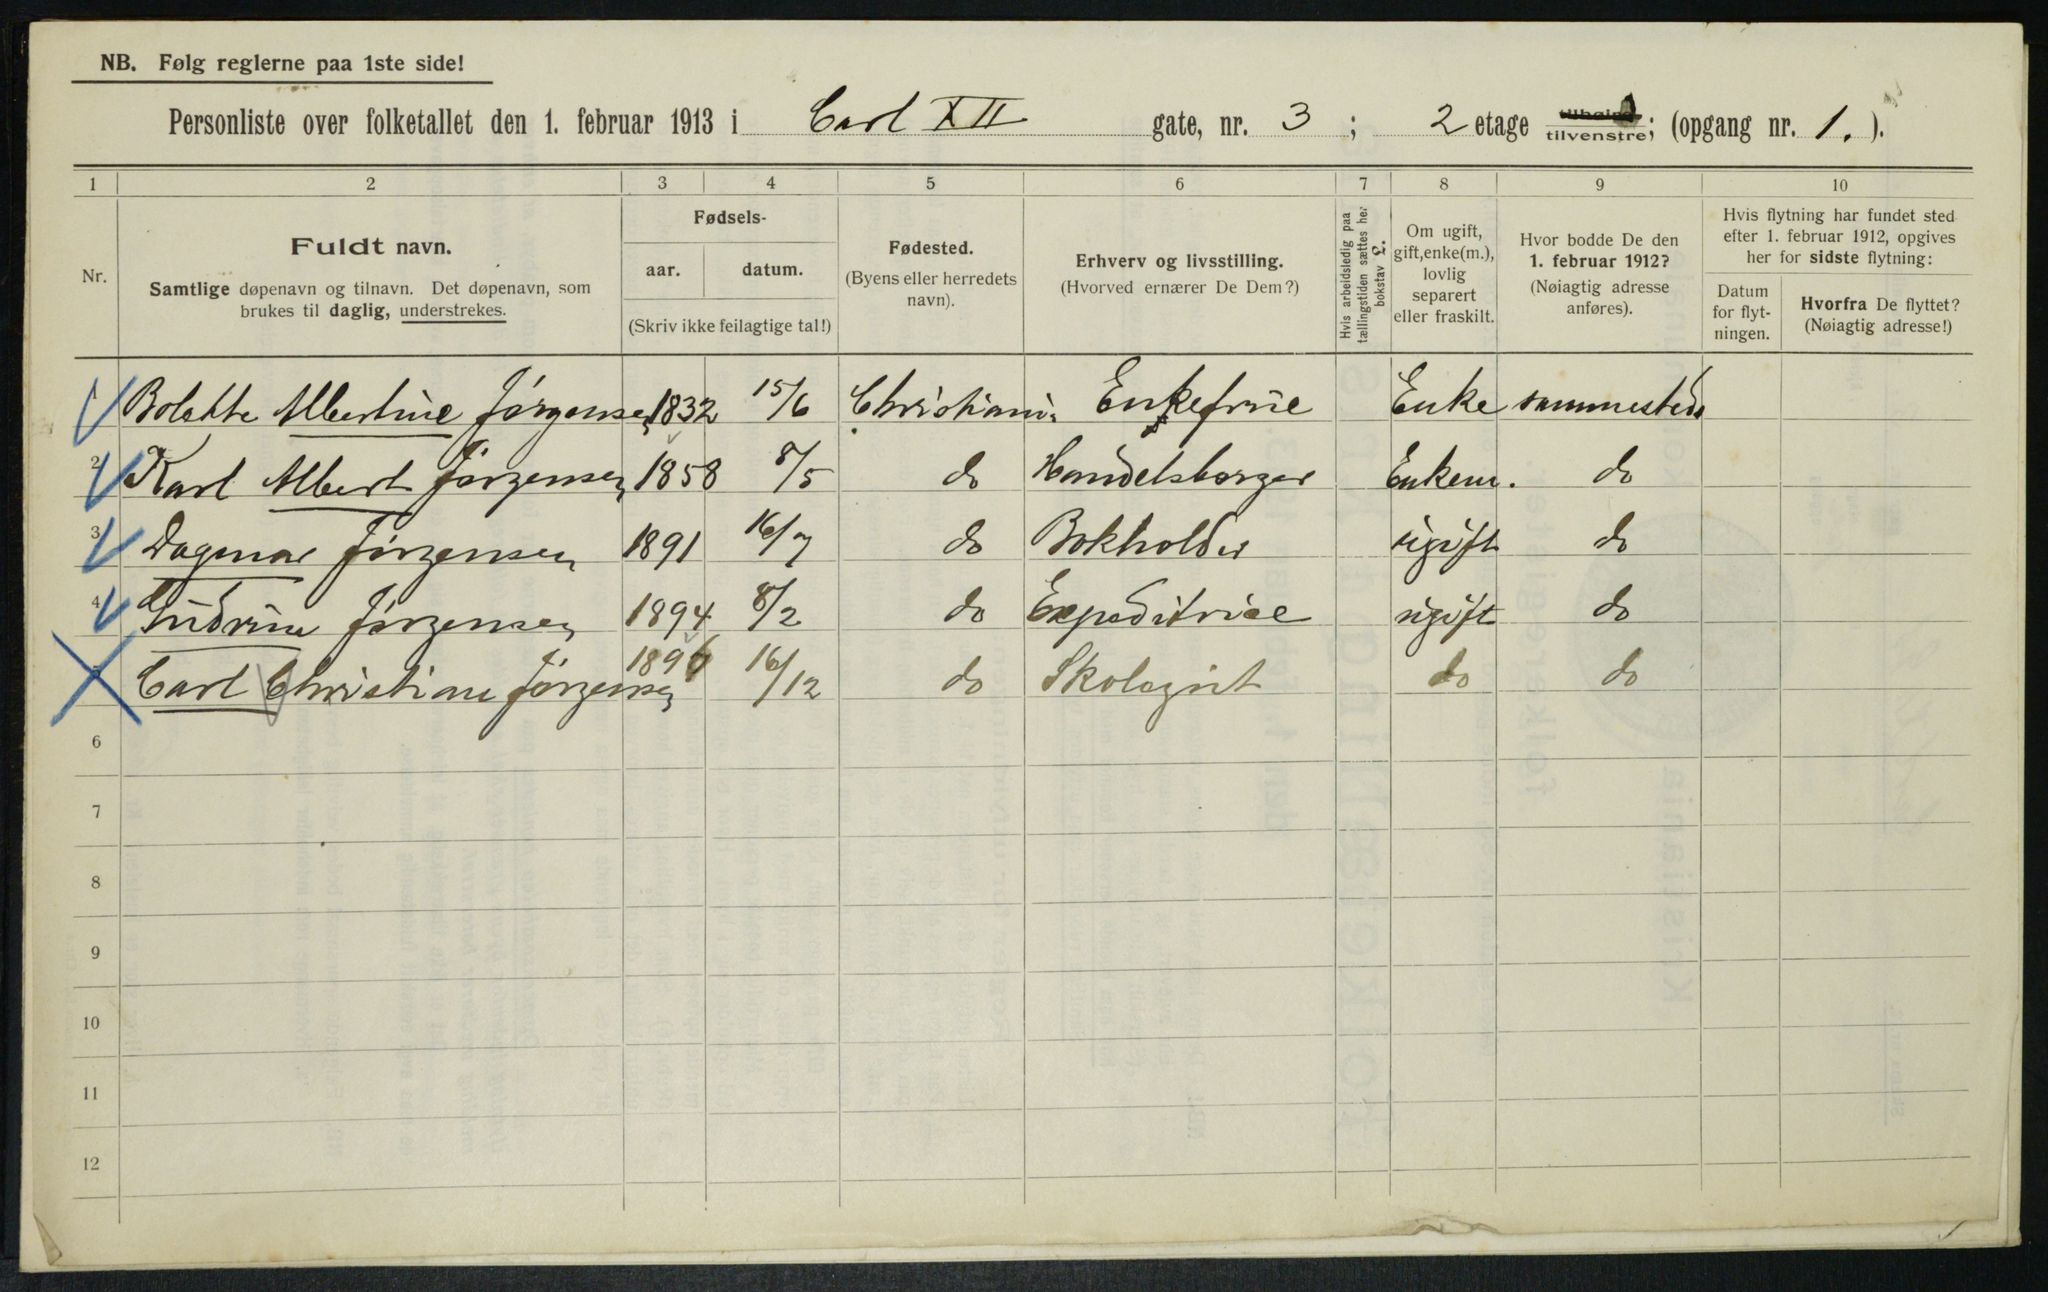 NB. Følg reglerne paa 1ste side!
Personliste over folketallet den 1. februar 1913 i Carl XII gate, nr. 3 ; 2 etage tilhøire tilvenstre; (opgang nr. 1. ).
1 2 3 4 5 6 7 8 9 10
Nr.
Fuldt navn.
Samtlige døpenavn og tilnavn. Det døpenavn, som
brukes til daglig, understrekes.
Fødsels-
aar. datum.
(Skriv ikke feilagtige tal!)
Fødested.
(Byens eller herredets
navn).
Erhverv og livsstilling.
(Hvorved ernærer De Dem?)
Hvis arbeidsledig paa
tællingstiden sættes her
bokstav £.
Om ugift,
gift, enke(m.),
lovlig
separert
eller fraskilt.
Hvor bodde De den
1. februar 1912?
(Nøiagtig adresse
anføres).
Hvis flytning har fundet sted
efter 1. februar 1912, opgives
her for sidste flytning:
Datum
for flyt-
ningen.
Hvorfra De flyttet?
(Nøiagtig adresse!)
1 Bolette Albertine Jørgensen 1832 15/6 Christiania Enkefrue Enke sammesteds
2 Karl Albert Jørgensen 1858 8/5 do Handelsborger Enkem. do
3 Dagmar Jørgensen 1891 16/7 do Bokholder ugift do
4 Gudrun Jørgensen 1894 8/2 do Expeditrice ugift do
5 Carl Christian Jørgensen 1896 16/12 do Skologist do do
6
7
8
9
10
11
12